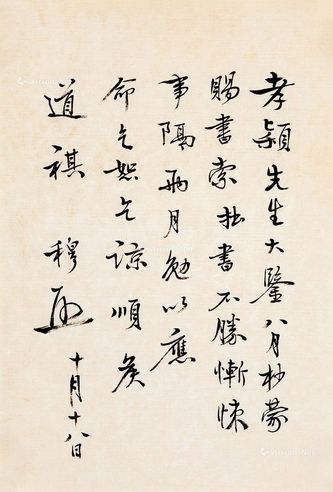 孝颖先生大鑒八月杪蒙
賜書索拙書不勝慚悚
事隔兩月勉以應
命乞恕乞諒順矦
道祺 穆 十月十八日